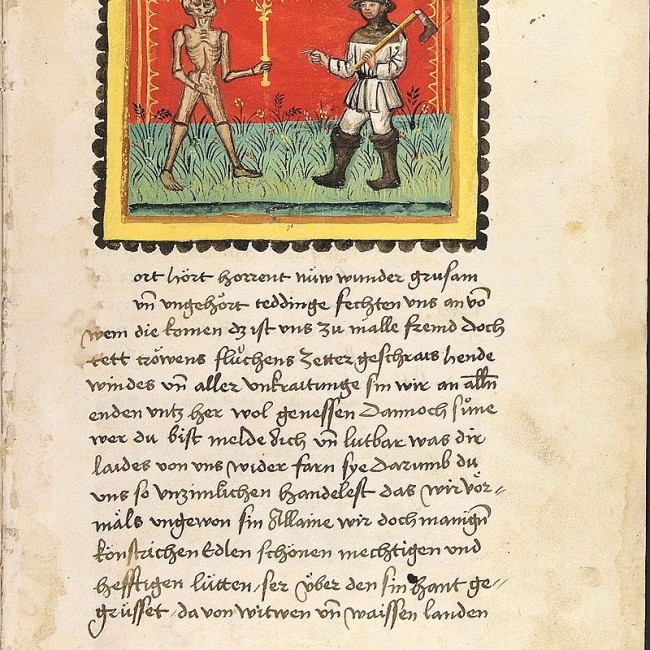 ort hört horrent nüw wunder grusam
vn̄ vngehört teddinge fechten vns an vō
wem die komen dz ist vns zu mălle fremd doch
tett tröwens flůchens zetter geschrais hende
windes vn̄ aller vnkraittunge sin wir an alln̄
enden vntz her wol genessen dannoch süne
wer du bist melde dich vn̄ lutbar was dir
laides von vns wider farn sye darumb du
vns so vnzimlichen handelest das wir vor-
mäls vngewon sin Allaine wir doch manign̄
könstrichen edlen schönen mechtigen vnd
hefftigen lütten ser über den sin hant ge-
grüsset da von witwen vn̄ waissen landen